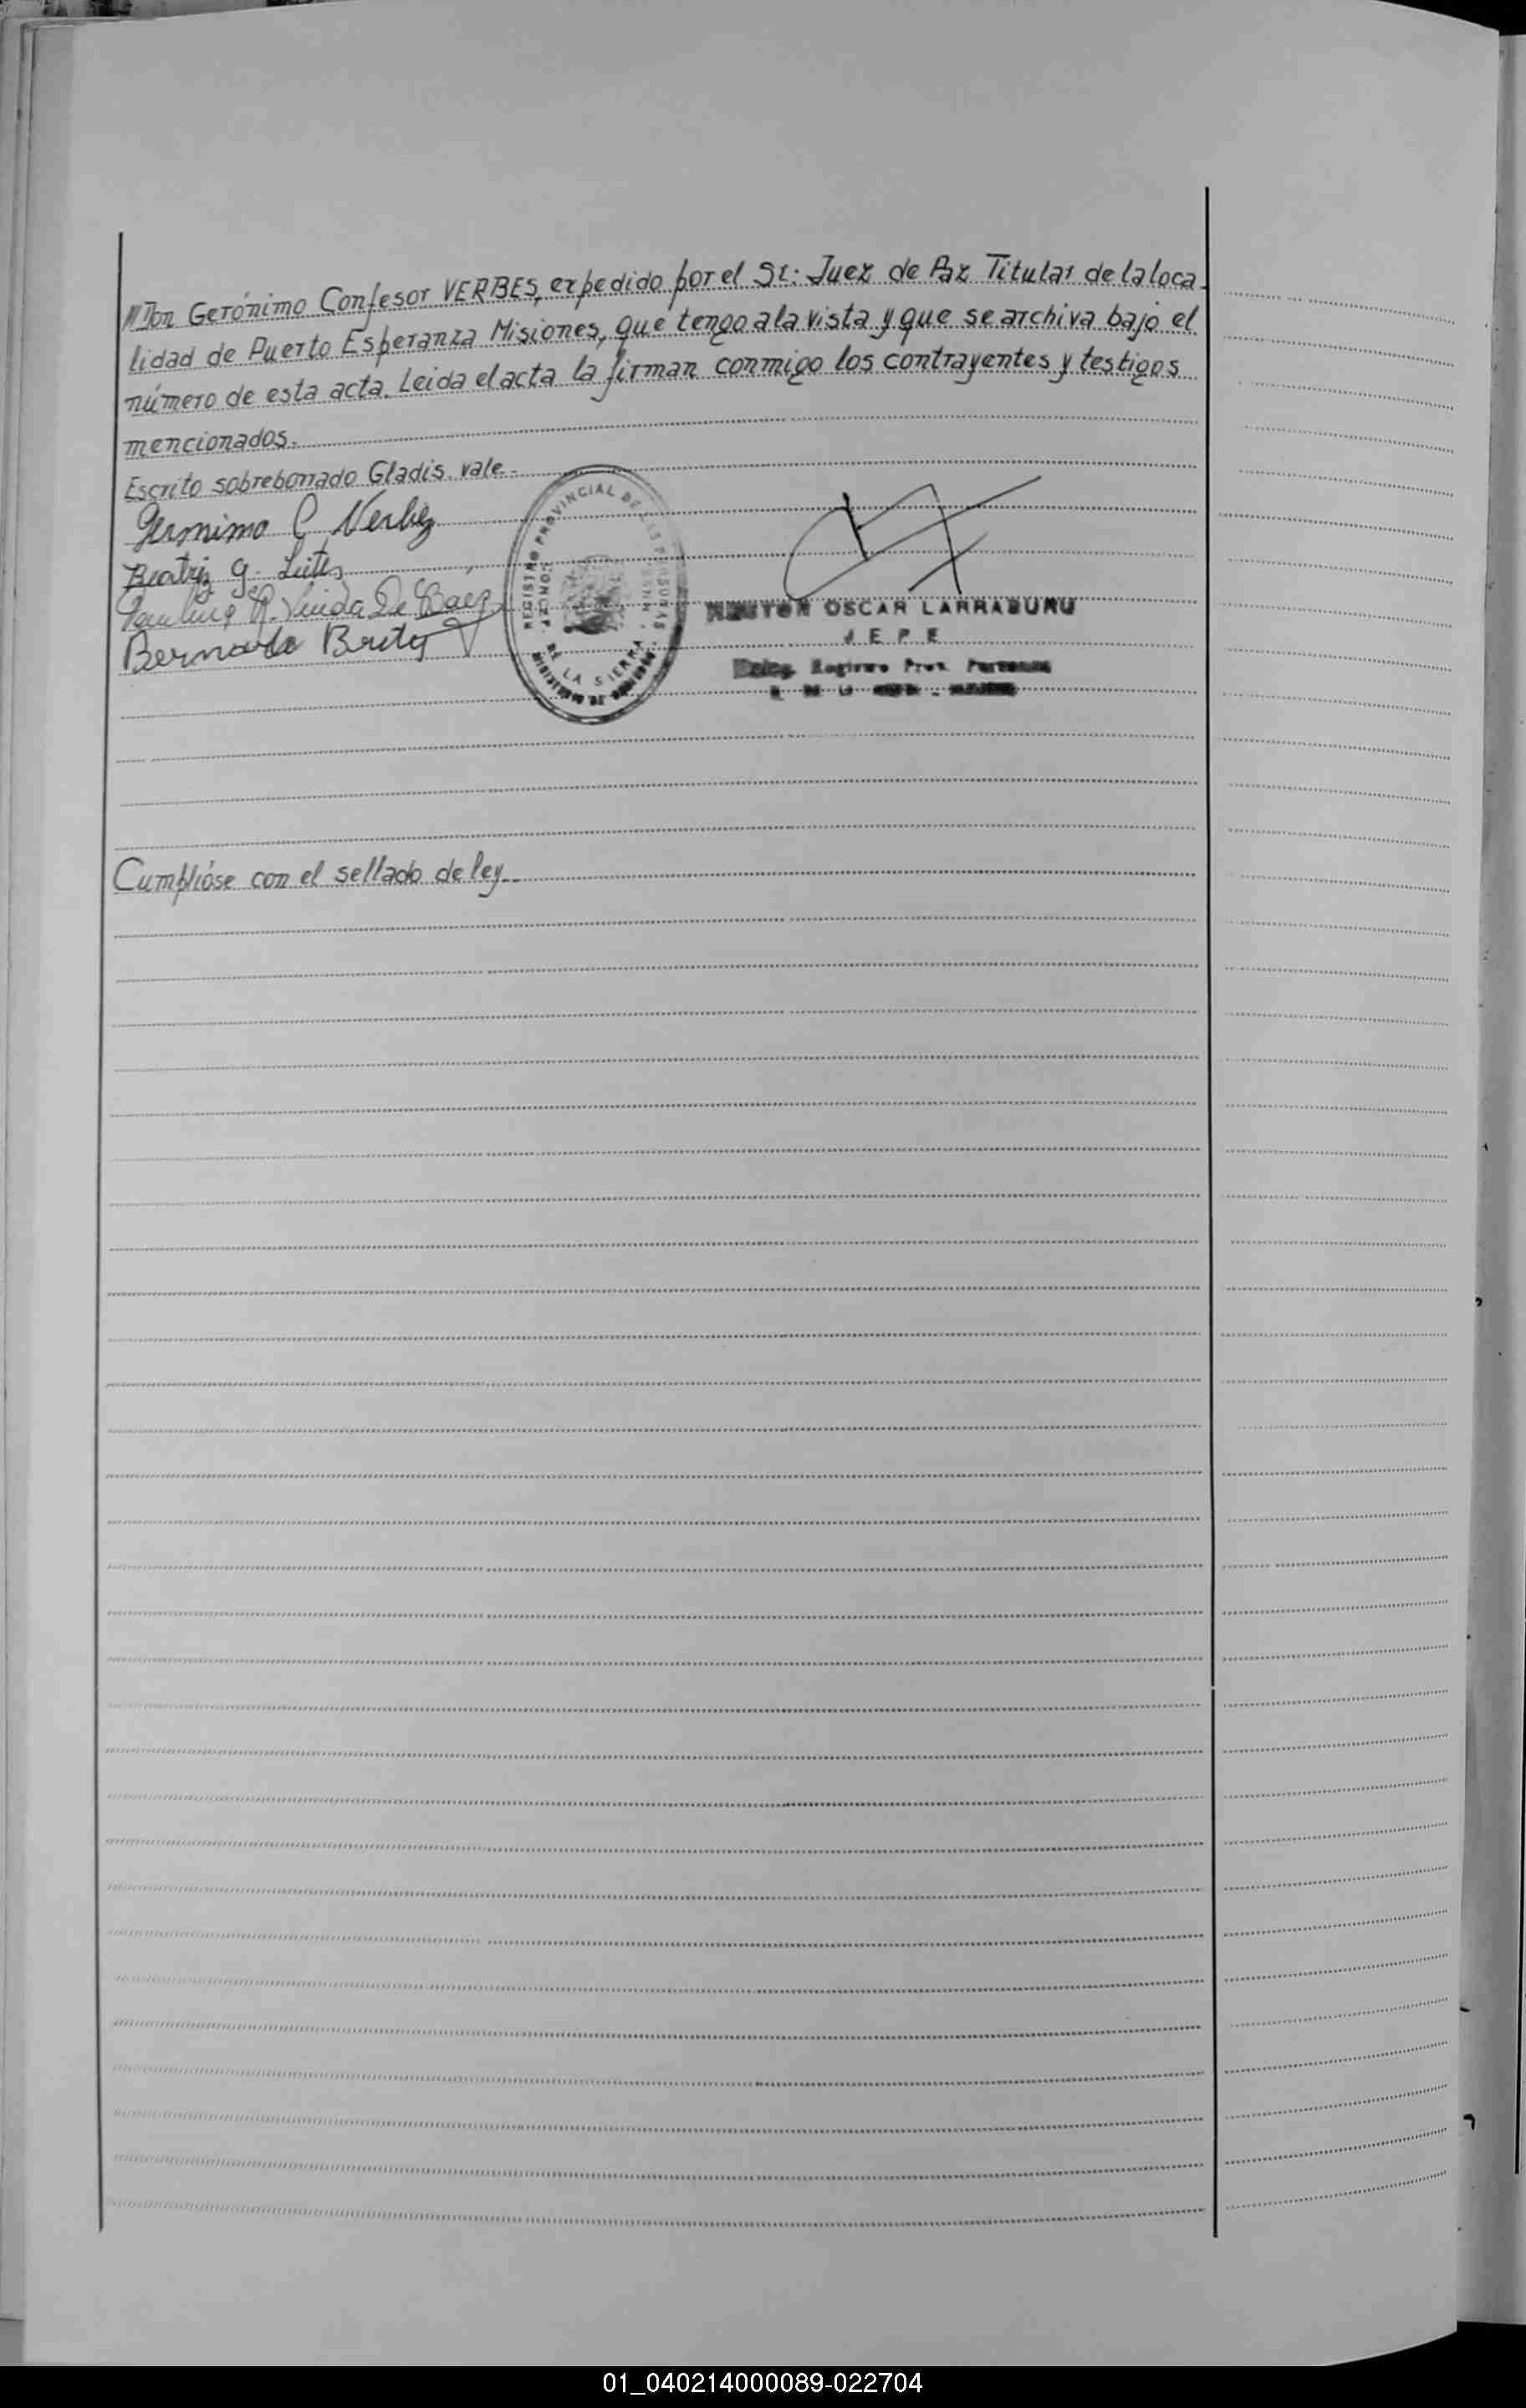 //Don Gerónimo Confesor VERBES, expedido por el Sr: Juez de Paz Titular de la loca-
lidad de Puerto Esperanza Misiones, que tengo a la vista y que se archiva bajo el
número de esta acta. Leida el acta la firman conmigo los contrayentes y testigos
mencionados.
Escrito sobreborrado Gladis. vale.-
Geronimo C Verbez
Beatriz G.
Viuda De Baez
Bernardo
REGISTRO PROVINCIAL DE LAS PERSONAS
DE LA SIERRA
MINISTERIO DE GOBIERNO
OSCAR LARRABURU
JEFE
Registro Prov. Personas
Cumplióse con el sellado de ley.-
01_040214000089-022704